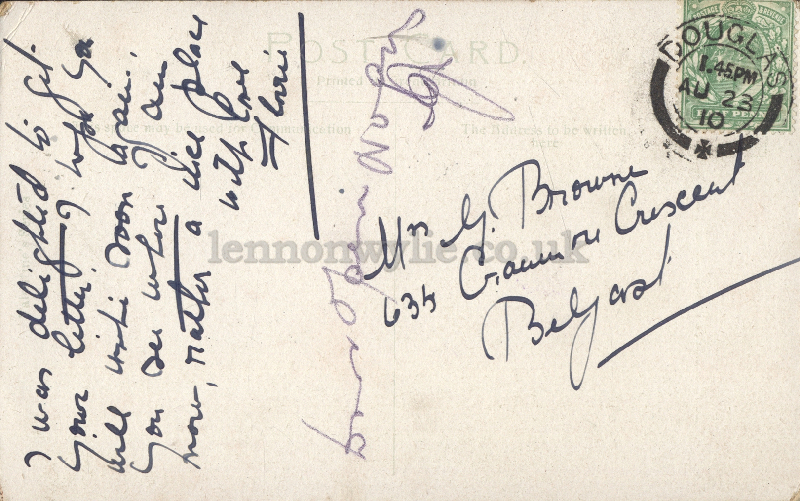 POST CARD
Printed
This space may be used for Communication
The Address to be written here
I was delighted to get
your letter. I hope you
will write soon again.
You see where I am
now, rather a nice place
with love
Florrie
Mrs G. Browne
Crescent
Belfast
DOUGLAS
1.45PM
AU 23
10
lennonwylie.co.uk